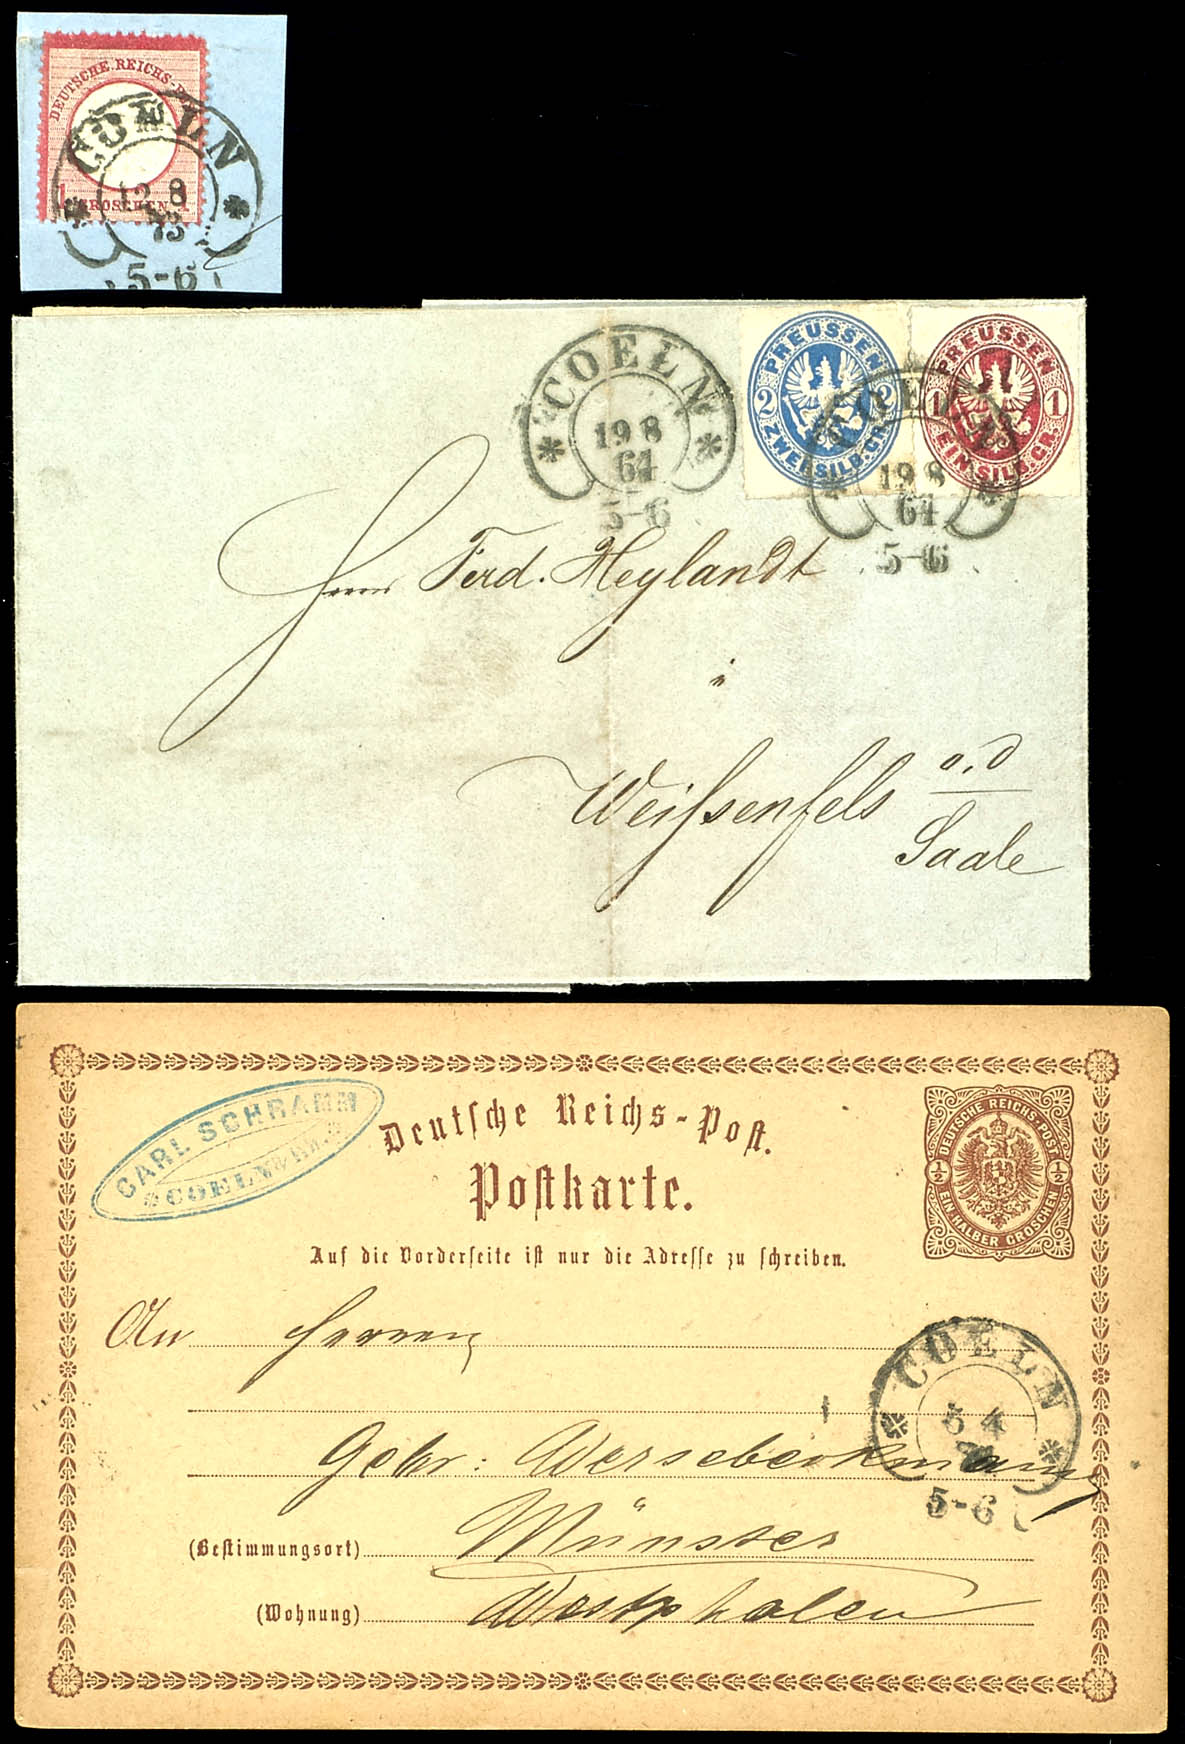 DEUTSCHE REICHS-P
COELN
12 8
73
1 GROSCHEN 1
5-6
COELN
19 8
64
5-6
PREUSSEN
2 2
ZWEI SILB. GR.
PREUSSEN
1 1
EIN SILB. GR.
COELN
19 8
64
5-6
Herrn Ferd. Heylandt
in
Weißenfels a.d
Saale
CARL SCHRAMM
COELN
Deutsche Reichs-Post.
Postkarte.
Auf die Vorderseite ist nur die Adresse zu schreiben.
DEUTSCHE REICHS-POST
½ ½
EIN HALBER GROSCHEN
An Herren
COELN
5 4
5-6
Gebr:
(Bestimmungsort) Münster
(Wohnung) Westphalen